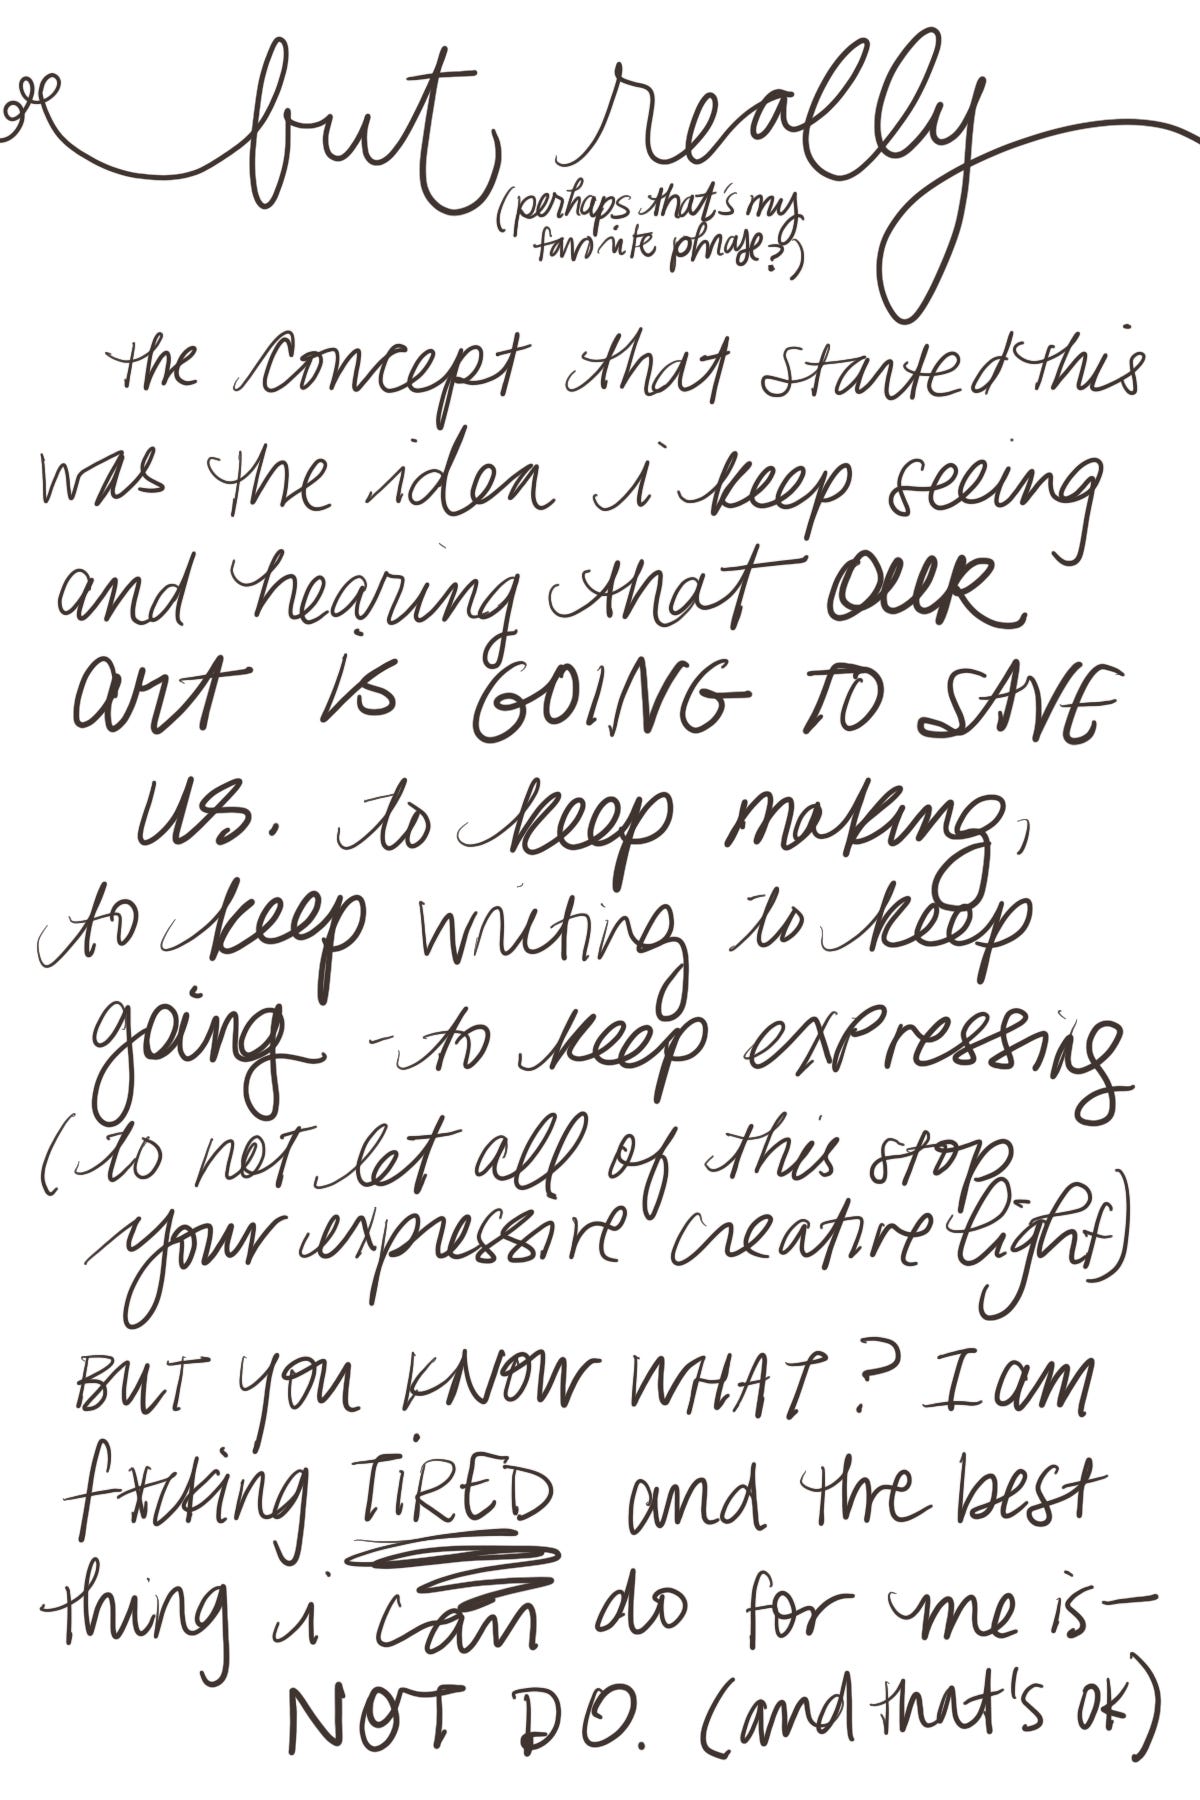 but really
(perhaps that's my
favorite phrase?)
the concept that started this
was the idea i keep seeing
and hearing that OUR
art is GOING TO SAVE
US. to keep making,
to keep writing to keep
going - to keep expressing
(to not let all of this stop
your expressive creative light)
BUT YOU KNOW WHAT? I am
f*cking TIRED and the best
thing i can do for me is—
NOT DO. (and that's OK)